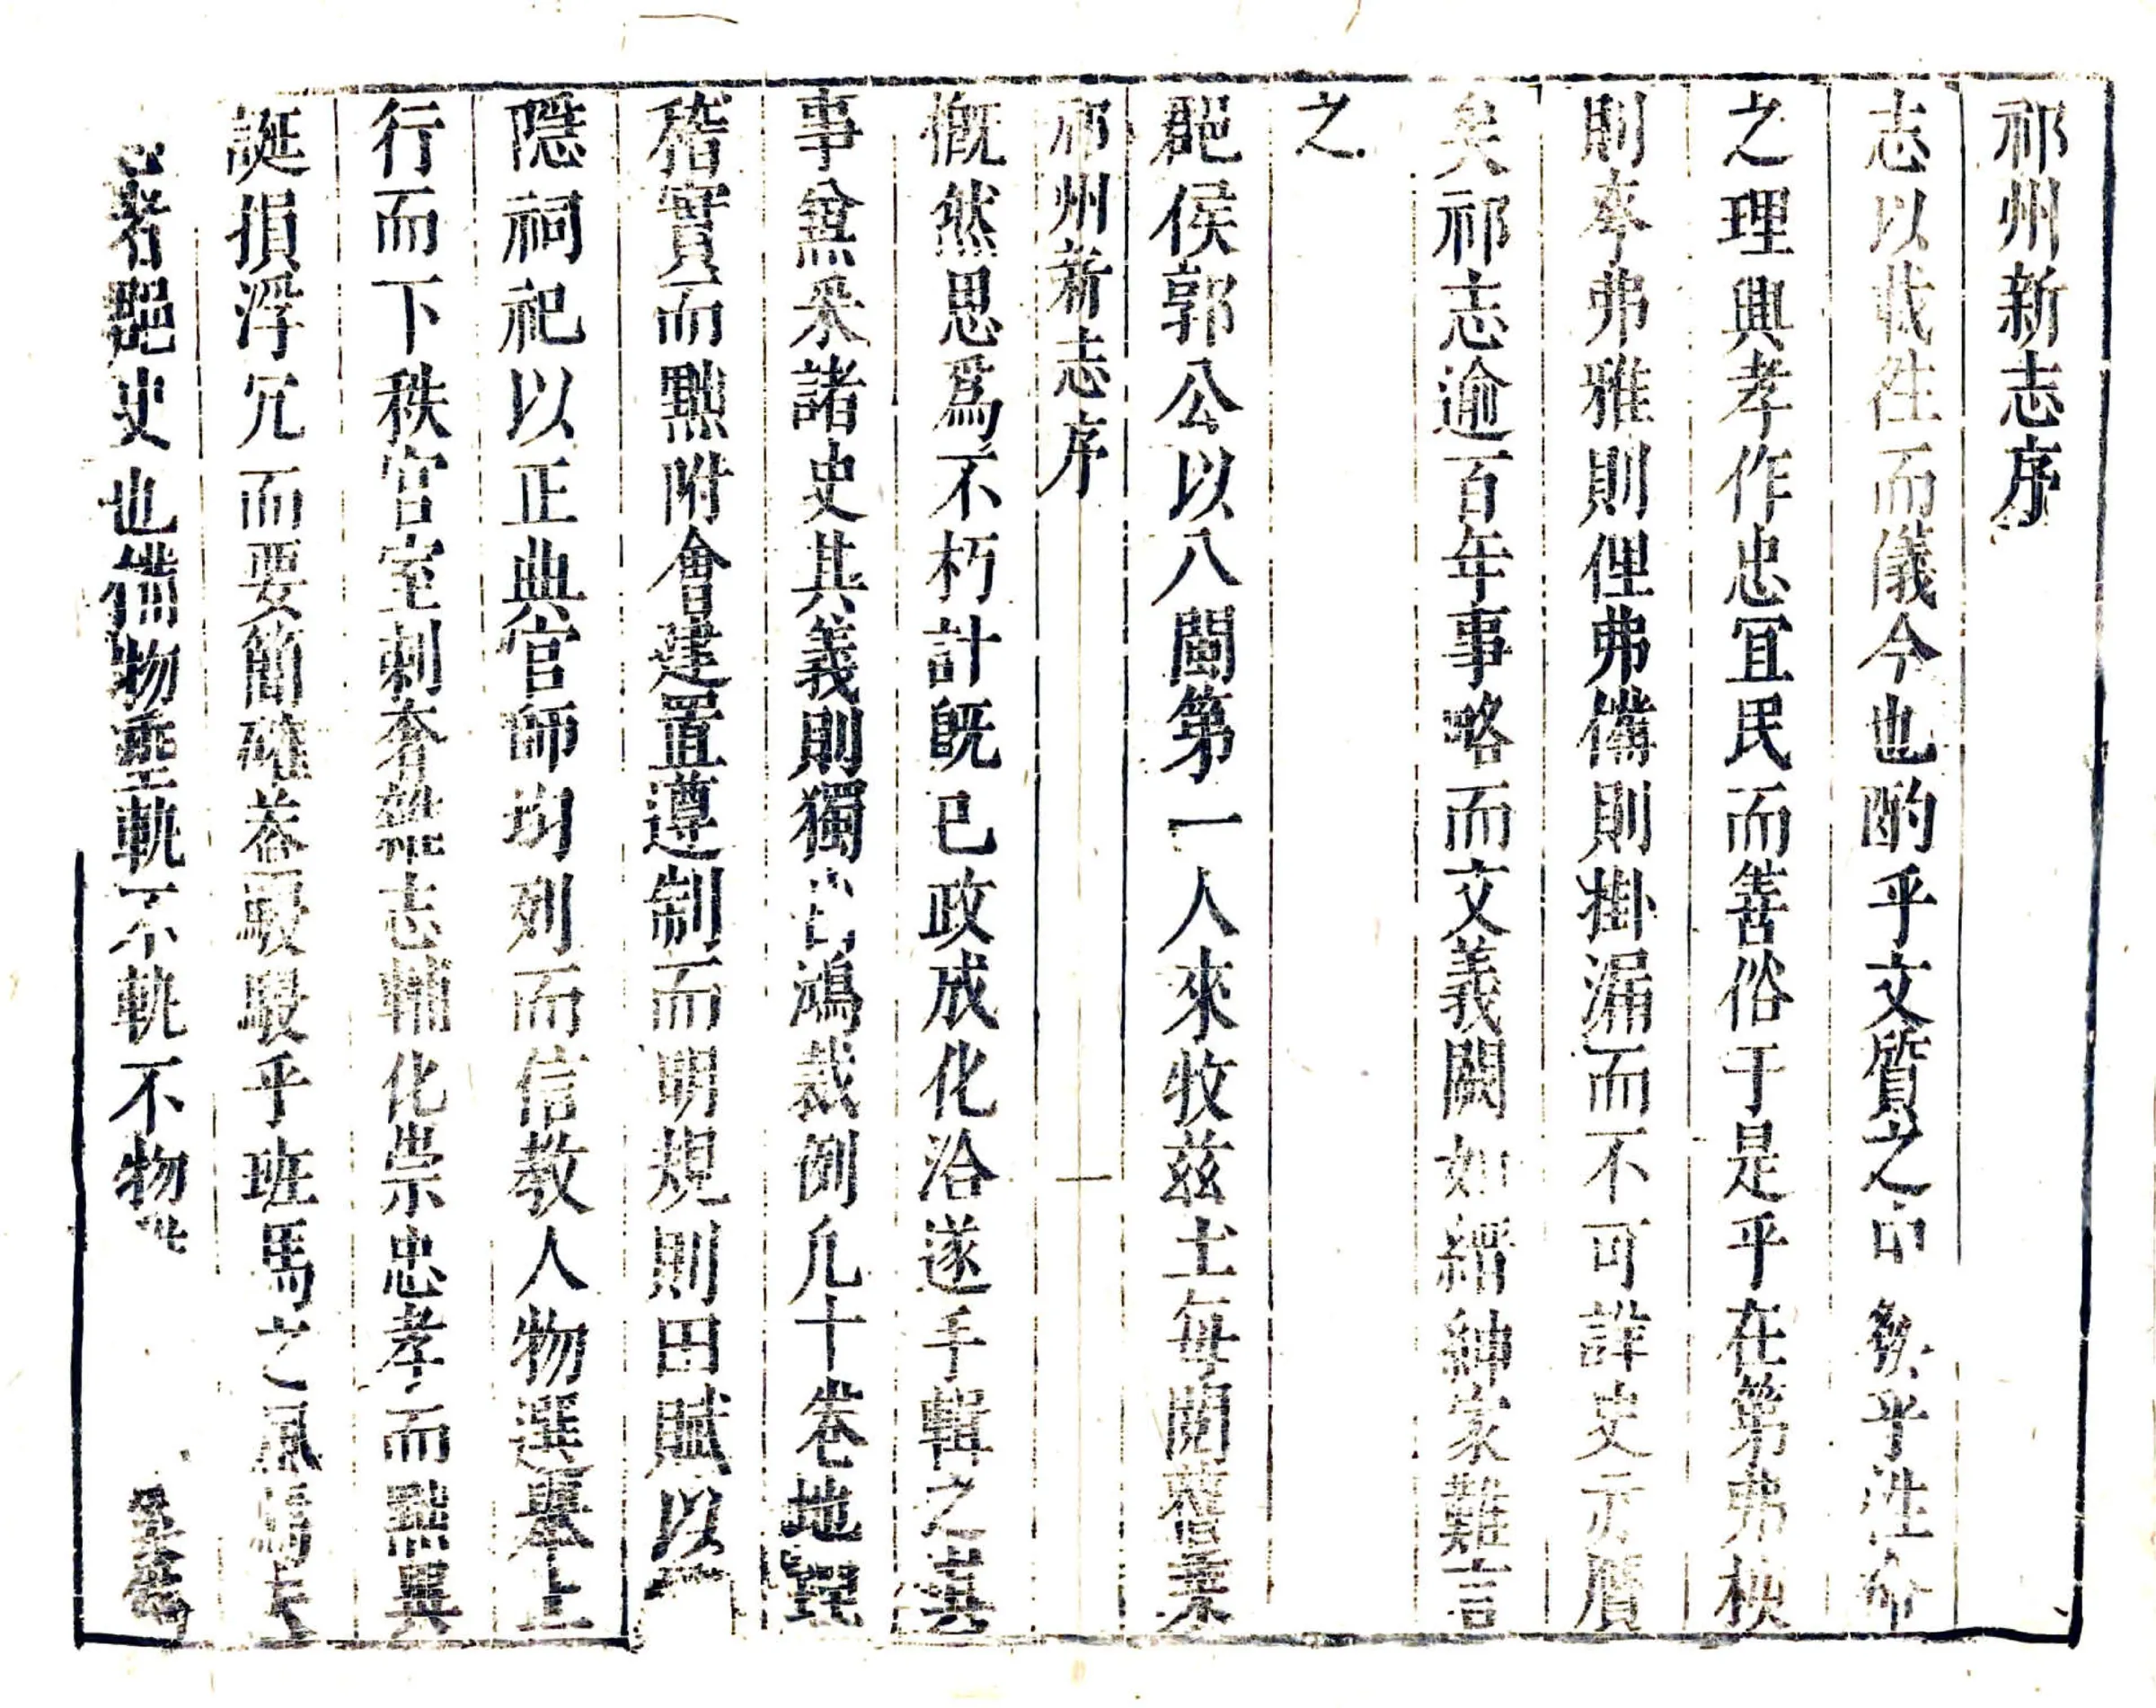 祁州新志序
志以載徃而儀今也酌乎文質之中 乎性命
之理興孝作忠宜民而善俗于是乎在第弗核
則弗雅則俚弗備則掛漏而不可詳史示贋
矣祁志逾百年事略而文義闕如縉紳家難言
之
郡侯郭公以八閩第一人來牧茲土每閱舊乗
祁州新志序
慨然思爲不朽計既已政成化洽遂手輯之其
事𠔥采諸史其義則獨 鴻裁例凡十卷地理
稽實而黜附會建置遵制而明規則田賦以
隱祠祀以正典官師均列而信教人物選舉上
行而下秩官室刺奢 志輔化崇忠孝而黜異
誕損浮冗而要簡確葢駸駸乎班馬之風焉夫
著郡史也備物埀軌不軌不物